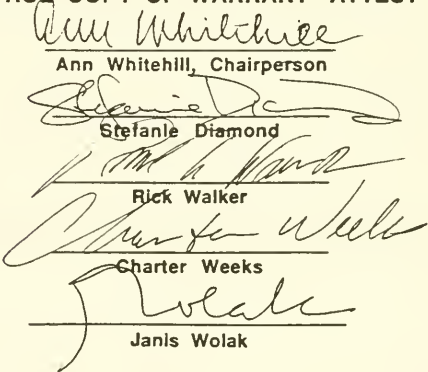 COPY OF WARRANT ATTEST
Ann Whitehill
Ann Whitehill, Chairperson
Stefanie Diamond
Stefanie Diamond
Rick Walker
Charter Weeks
Charter Weeks
J Wolak
Janis Wolak